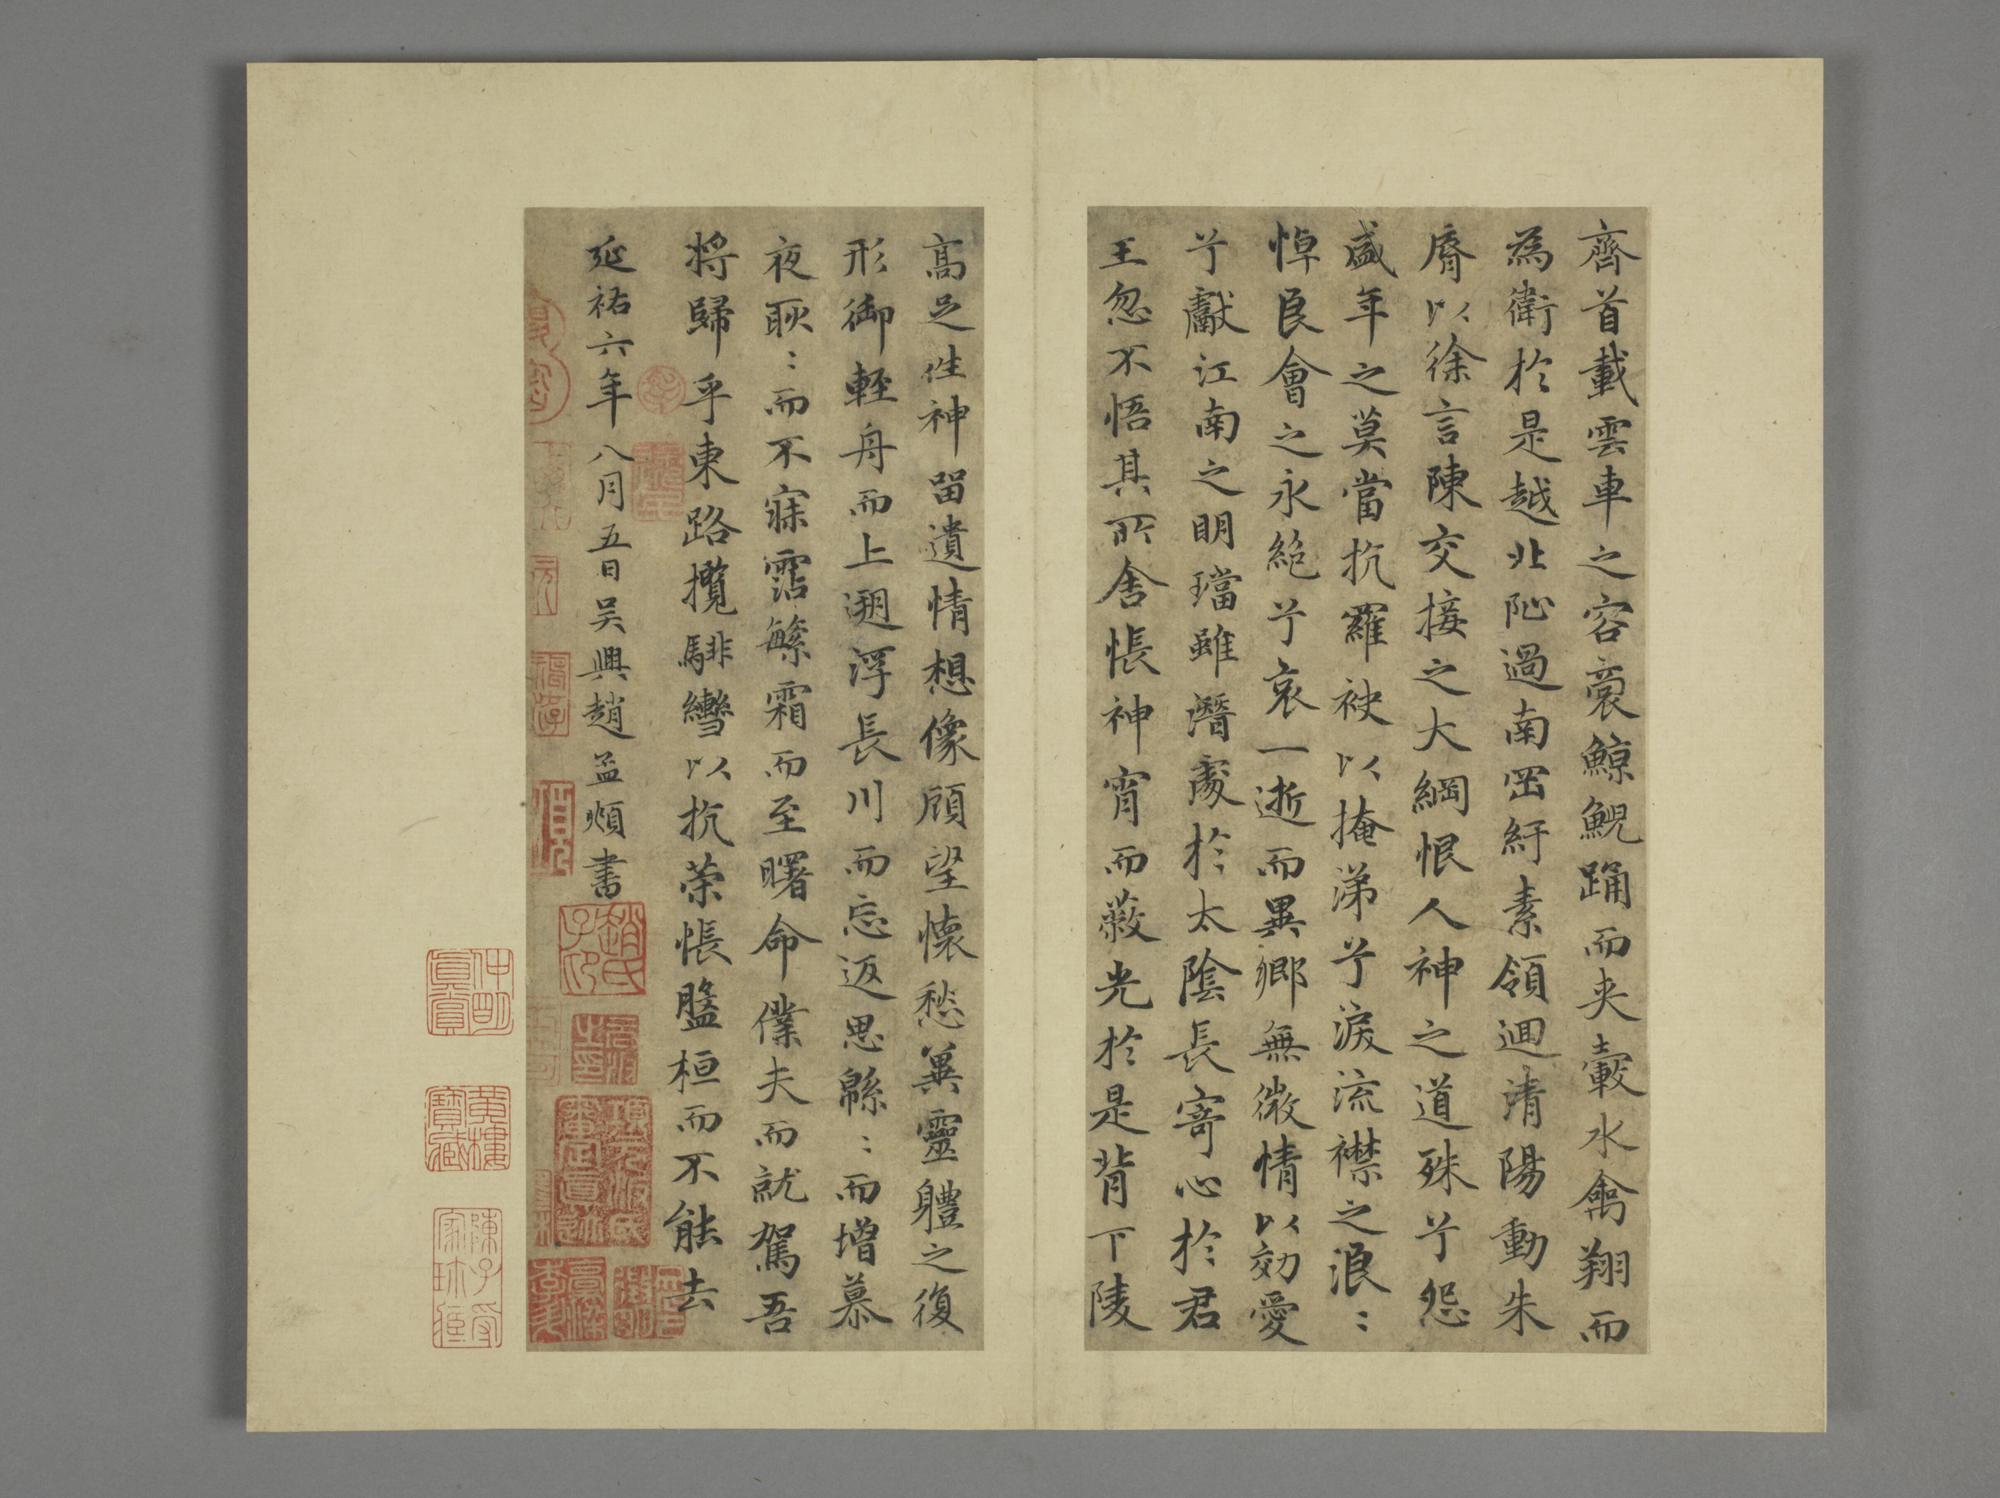 齊首載雲車之容裔鯨鯢踊而夾轂水禽翔而
為衛於是越北沚過南岡紆素領迴清陽動朱
脣以徐言陳交接之大綱恨人神之道殊兮怨
盛年之莫當抗羅袂以掩涕兮淚流襟之浪〻
悼良會之永絕兮哀一逝而異鄉無微情以効愛
兮獻江南之明璫雖潛處於太陰長寄心於君
王忽不悟其所舍悵神宵而蔽光於是背下陵
高足往神留遺情想像顧望懷愁冀靈體之復
形御輕舟而上遡浮長川而忘返思緜〻而增慕
夜耿〻而不寐霑繁霜而至曙命僕夫而就駕吾
將歸乎東路攬騑轡以抗策悵盤桓而不能去
延祐六年八月五日吳興趙孟頫書
趙氏子印
項元汴氏審定真跡
仲明真賞
黃樓寶藏
陳子受家珍藏